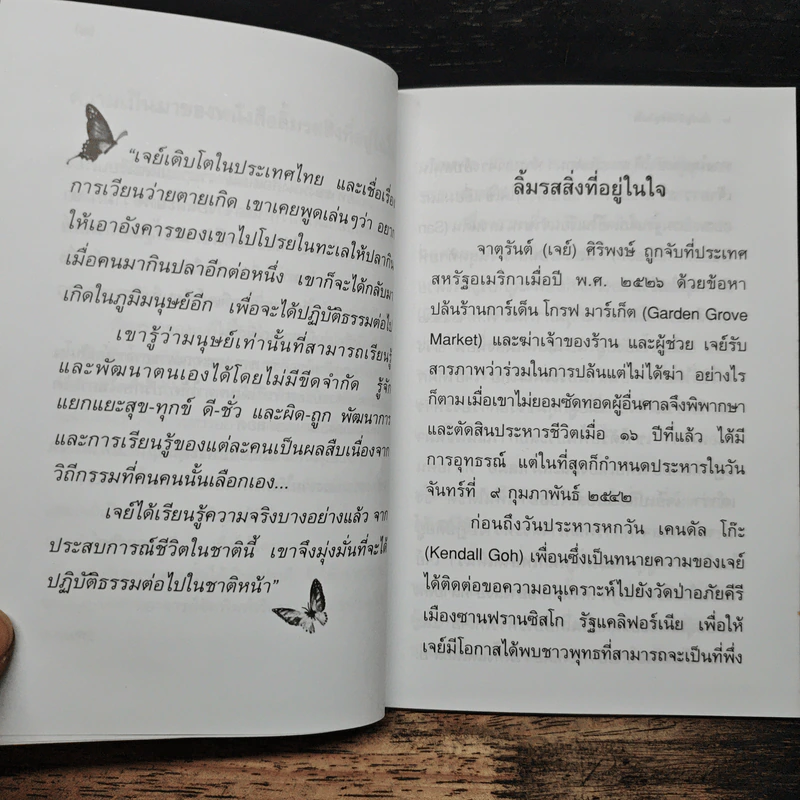 “เจย์เติบโตในประเทศไทย และเชื่อเรื่อง
การเวียนว่ายตายเกิด เขาเคยพูดเล่นๆว่า อยาก
ให้เอาอังคารของเขาไปโปรยในทะเลให้ปลากิน
เมื่อคนมากินปลาอีกต่อหนึ่ง เขาก็จะได้กลับมา
เกิดในภูมิมนุษย์อีก เพื่อจะได้ปฏิบัติธรรมต่อไป
เขารู้ว่ามนุษย์เท่านั้นที่สามารถเรียนรู้
และพัฒนาตนเองได้โดยไม่มีขีดจำกัด รู้จัก
แยกแยะสุข-ทุกข์ ดี-ชั่ว และผิด-ถูก พัฒนาการ
และการเรียนรู้ของแต่ละคนเป็นผลสืบเนื่องจาก
วิถีกรรมที่คนคนนั้นเลือกเอง...
เจย์ได้เรียนรู้ความจริงบางอย่างแล้ว จาก
ประสบการณ์ชีวิตในชาตินี้ เขาจึงมุ่งมั่นที่จะได้
ปฏิบัติธรรมต่อไปในชาติหน้า”
ลิ้มรสสิ่งที่อยู่ในใจ
จาตุรันต์ (เจย์) ศิริพงษ์ ถูกจับที่ประเทศ
สหรัฐอเมริกาเมื่อปี พ.ศ. ๒๕๒๖ ด้วยข้อหา
ปล้นร้านการ์เด็น โกรฟ มาร์เก็ต (Garden Grove
Market) และฆ่าเจ้าของร้าน และผู้ช่วย เจย์รับ
สารภาพว่าร่วมในการปล้นแต่ไม่ได้ฆ่า อย่างไร
ก็ตามเมื่อเขาไม่ยอมซัดทอดผู้อื่นศาลจึงพิพากษา
และตัดสินประหารชีวิตเมื่อ ๑๖ ปีที่แล้ว ได้มี
การอุทธรณ์ แต่ในที่สุดก็กำหนดประหารในวัน
จันทร์ที่ ๙ กุมภาพันธ์ ๒๕๔๒
ก่อนถึงวันประหารหกวัน เคนดัล โก๊ะ
(Kendall Goh) เพื่อนซึ่งเป็นทนายความของเจย์
ได้ติดต่อขอความอนุเคราะห์ไปยังวัดป่าอภัยคีรี
เมืองซานฟรานซิสโก รัฐแคลิฟอร์เนีย เพื่อให้
เจย์มีโอกาสได้พบชาวพุทธที่สามารถจะเป็นที่พึ่ง